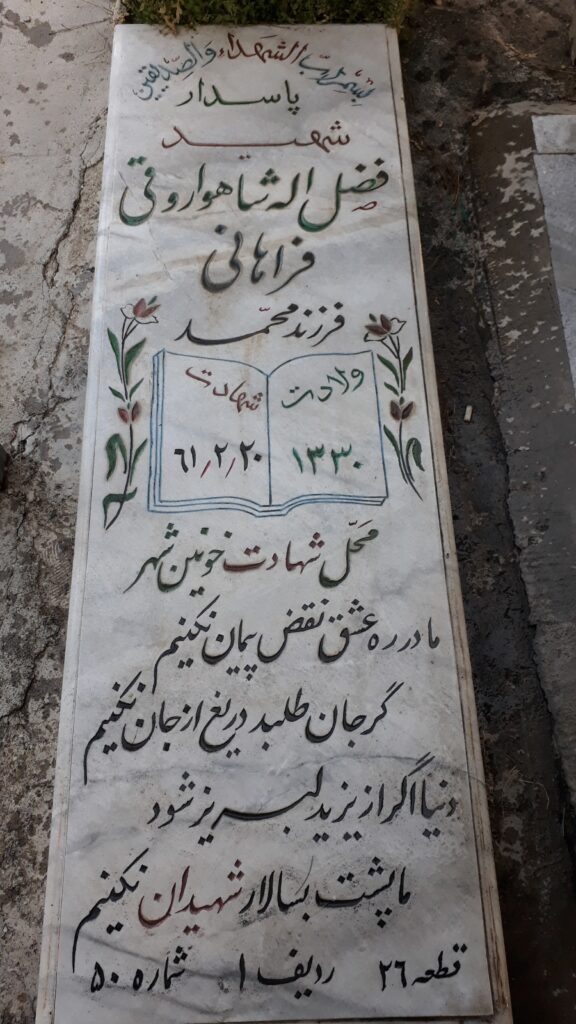 بسم رب الشهداء والصدیقین
پاسدار
شهید
فضل اله شاهواروقی
فراهانی
فرزند محمّد
ولادت
۱۳۳۰
شهادت
۶۱٫۲٫۲۰
محلّ شهادت خونین شهر
ما در ره عشق نقض پیمان نکنیم
گر جان طلبد دریغ از جان نکنیم
دنیا اگر از یزید لبریز شود
ما پشت بسالار شهیدان نکنیم
قطعه ۲۶ ردیف ۱ شماره ۵۰